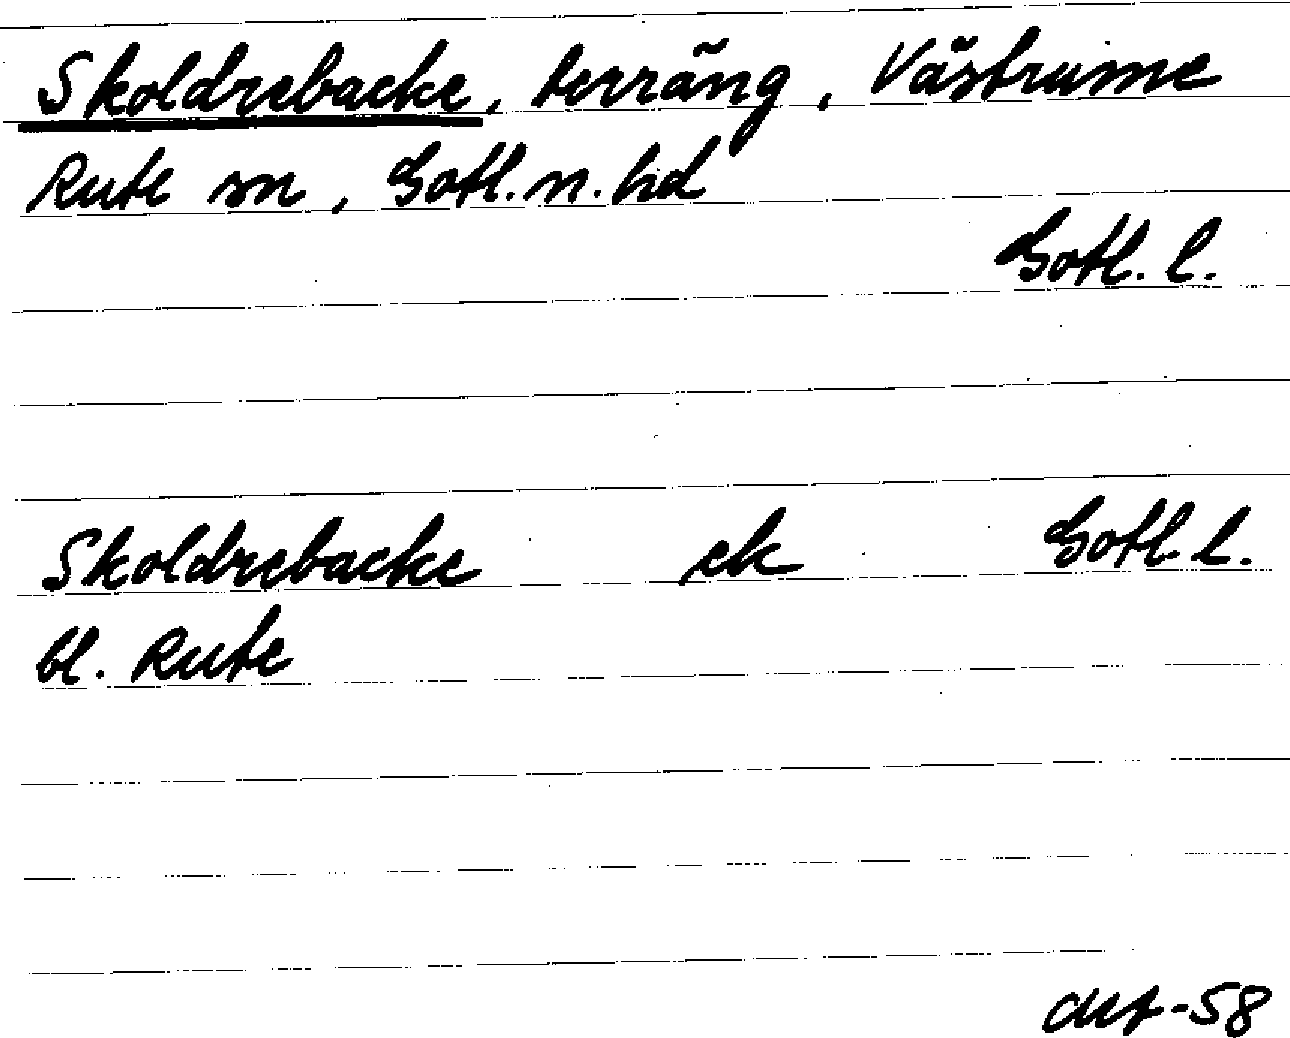 Skoldrebacke, terräng, Västrume
Rute sn, Gotl. n. hd
Gotl. l.
Skoldrebacke ek Gotl. l.
bl. Rute
-58